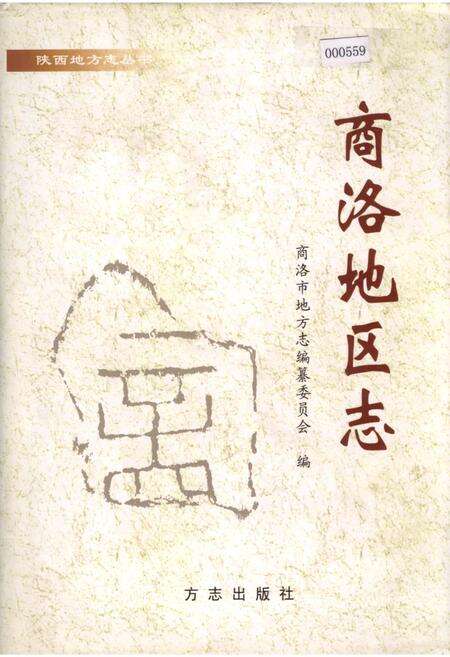 陕西地方志丛书
000559
商洛地区志
商洛市地方志编纂委员会 编
方志出版社